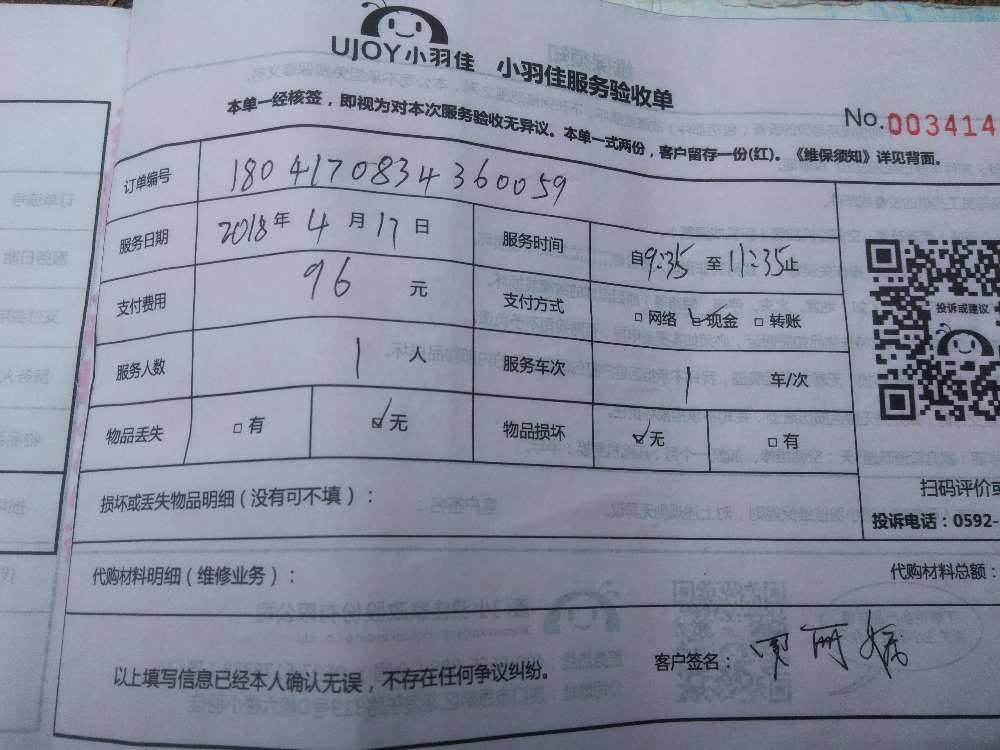 UJOY小羽佳 小羽佳服务验收单
本单一经核签，即视为对本次服务验收无异议。本单一式两份，客户留存一份(红)。《维保须知》详见背面。
No.003414
订单编号 1804170834360059
服务日期 2018年4月17日 服务时间 自9:35至11:35止
支付费用 96 元 支付方式 □网络 ☑现金 □转账
投诉或建议
服务人数 1 人 服务车次 1 车/次
物品丢失 □有 ☑无 物品损坏 ☑无 □有
损坏或丢失物品明细（没有可不填）：
扫码评价或
投诉电话：0592-
代购材料明细（维修业务）：
代购材料总额：
以上填写信息已经本人确认无误，不存在任何争议纠纷。
客户签名：